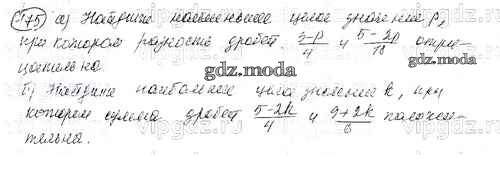 175 а) Найдите наименьшее целое значение p,
при котором разность дробей (3-p)/4 и (5-2p)/18 отри-
цательна.
gdz.moda gdz.moda
б) Найдите наибольшее целое значение k, при
котором сумма дробей (5-2k)/4 и (9+2k)/6 положи-
тельна.